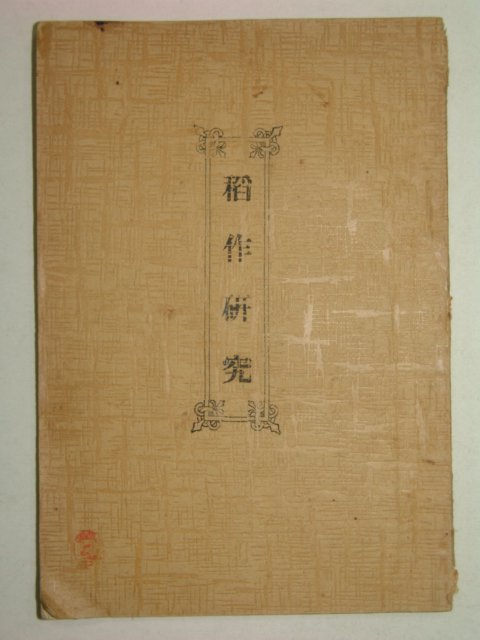 稻作研究